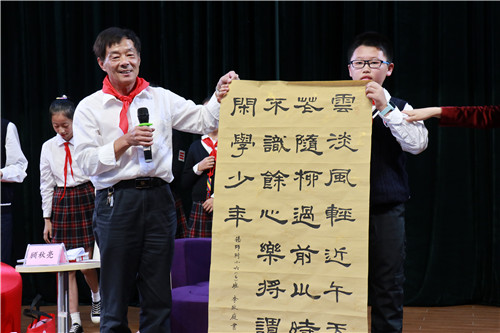 雲淡風輕近午天
花隨柳過前川時
不識餘心樂將謂
閑學少年
秋亮